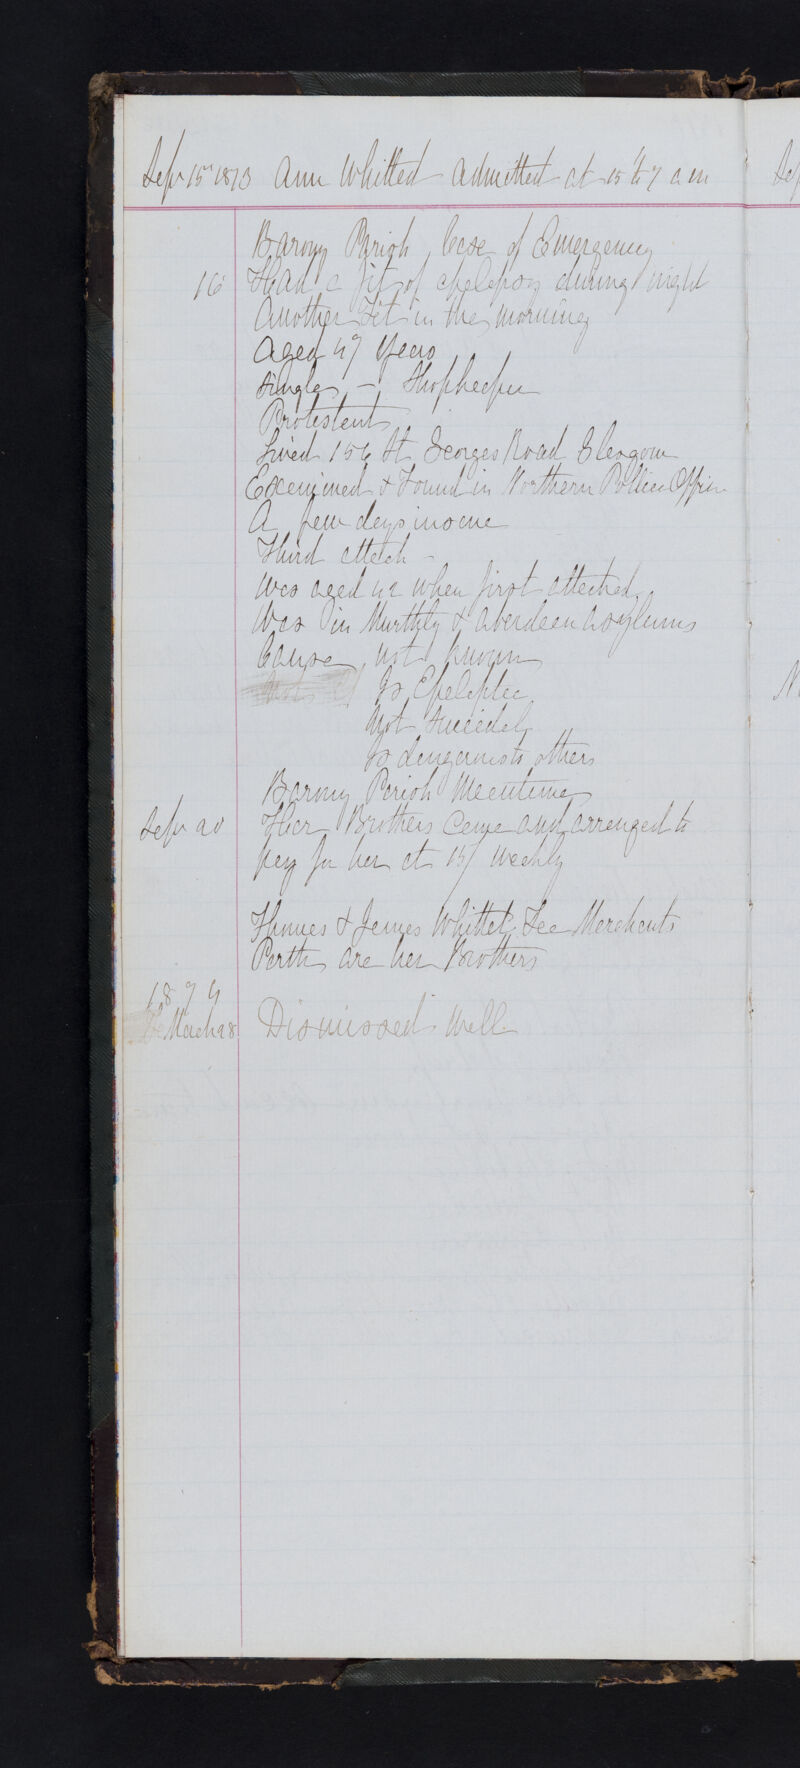 Sepr 15th 1873 Ann Whitted Admitted at 15 to 7 a m
Barony Parish Case of Emergency
16 Had a fit of epelepsy during night
Another Fit in the morning
Aged 47 years
Single - Shopkeeper
Protestent
Lived 156 St Georges Road Glasgow
Exeminned & Found in Northern Police Office
A few days insane
Third attack -
Was aged 42 when first attacked
Was in Murthly & Aberdeen Asylums
Cause not known
Is Epeleptec
Not Suicidal
Is dangerous to others
Barony Parish Meentime
Sepr 20 Her Brothers came and arranged to
pay for her at 15/ weekly
Thomas & James Whittet Tea Merchants
Perth are her Brothers
1874
March 28 Dismissed Well